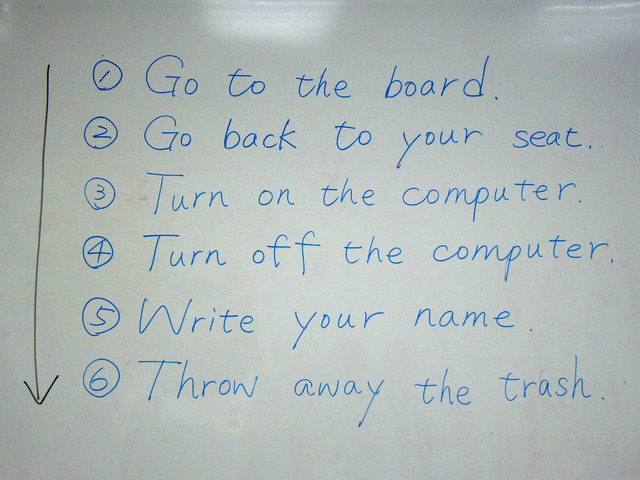 ① Go to the board.
② Go back to your seat.
③ Turn on the computer.
④ Turn off the computer.
⑤ Write your name.
⑥ Throw away the trash.